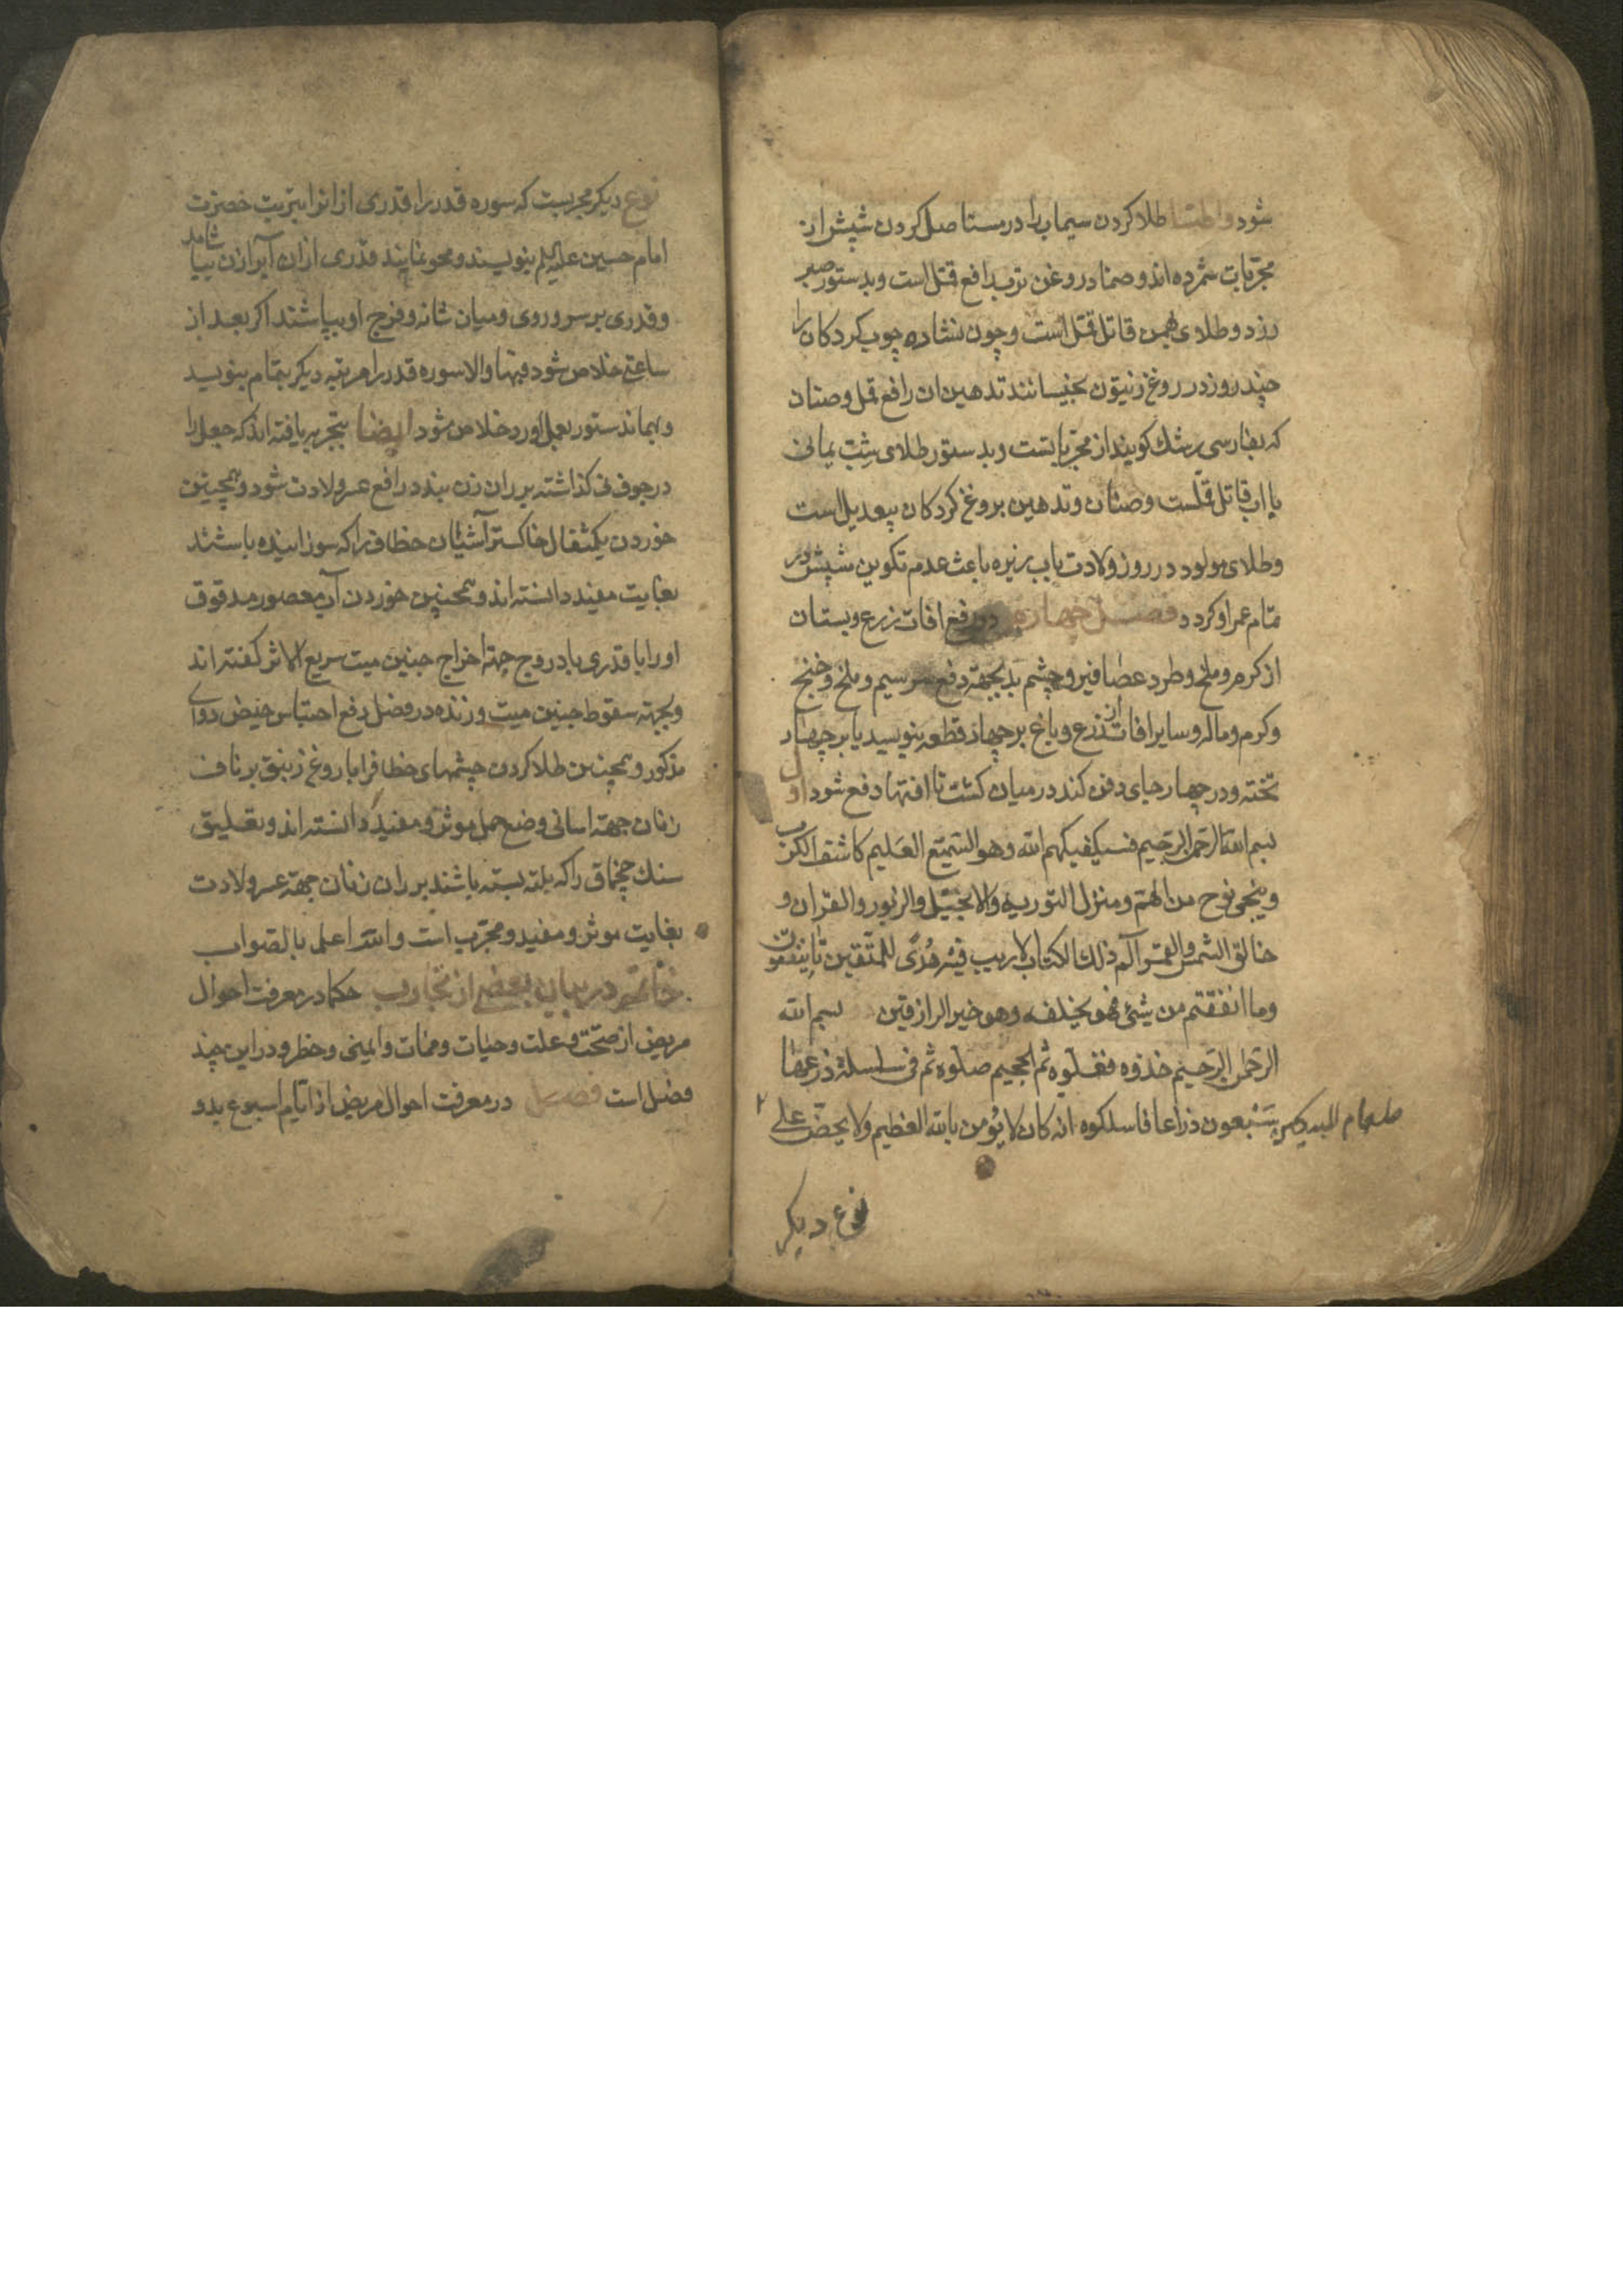 شود وایضا طلا کردن سیماب را در مستاصل کردن شپش از
مجربات شمرده اند و ضماد روغن ترب دافع قمل است و بدستور صبر
زرد و طلای همین قاتل قمل است و چون نشاره چوب کردکان را
چند روز در روغن زیتون بخیسانند تدهین ان رافع قمل و صئبان
که بفارسی رشک کویند از مجربا تست و بدستور طلای شب یمانی
با اب قاتل قملست و صئبان و تدهین بروغن کردکان بیعدیل است
و طلای مولود در روز ولادت باب زیره باعث عدم تکوین شپش در
تمام عمر او کردد فصل چهارم در رفع افات زرع و بستان
از کرم و ملخ و طرد عصافیر و چشم بد بجهة دفع سیم و ملخ و خنج
و کرم و ماله و سایر افات از زرع و باغ بر چهار قطعه بنویسد یا بر چهار
تخته و در چهار جای دفن کند در میان کشت تا افتها دفع شود اول
بسم الله الرحمن الرحیم فسیکفیکهم الله وهو السمیع العلیم کاشف الکرب
و ینجی نوح من الهم و منزل التوریة والانجیل والزبور والقران و
خالق الشمس والقمر الم ذلک الکتاب لاریب فیه هدی للمتقین تا ینفقون
وما انفقتم من شیئ فهو یخلفه وهو خیر الرازقین بسم الله
الرحمن الرحیم خذوه فغلوه ثم الجحیم صلوه ثم فی سلسلة ذرعها
سبعون ذراعا فاسلکوه انه کان لا یؤمن بالله العظیم ولا یحض علی
طعام المسکین
نوع دیکر
نوع دیکر مجربست که سوره قدر را قدری از انرا بتربت حضرت
امام حسین علیه السلم بنویسند و محو نمایند قدری ازان آب را زن بیاشامد
و قدری بر سر و روی و میان شانه و فرج او بپاشند اکر بعد از
ساعتی خلاص شود فبها والا سوره قدر را مرتبه دیکر بتمام بنویسد
و بهماندستور بعمل اورد خلاص شود ایضا بتجربه یافته اند که جعل را
در جوف نی کذاشته بر ران زن بندد رافع عسر ولادت شود و همچنین
خوردن یکمثقال خاکستر آشیان خطاف را که سوزانیده باشند
بغایت مفید دانسته اند و همچنین خوردن آب معصور مدقوق
او را با قدری بادروج جهة اخراج جنین میت سریع الاثر کفته اند
و بجهة سقوط جنین میت و زنده در فصل دفع احتباس حیض دوای
مذکور و همچنین طلا کردن چشمهای خطاف را با روغن زنبق بر ناف
زنان جهة اسانی وضع حمل موثر و مفید دانسته اند و تعلیق
سنک چخماق را که بلته بسته باشند بر ران زنان جهة عسر ولادت
بغایت موثر و مفید و مجرب است والله اعلم بالصواب
خاتمه در بیان بعضی از تجارب حکما در معرفت احوال
مریض از صحت و علت و حیات و ممات و ایمنی و خطر و در این چند
فصل است فصل در معرفت احوال مریض از ایام اسبوع بدو